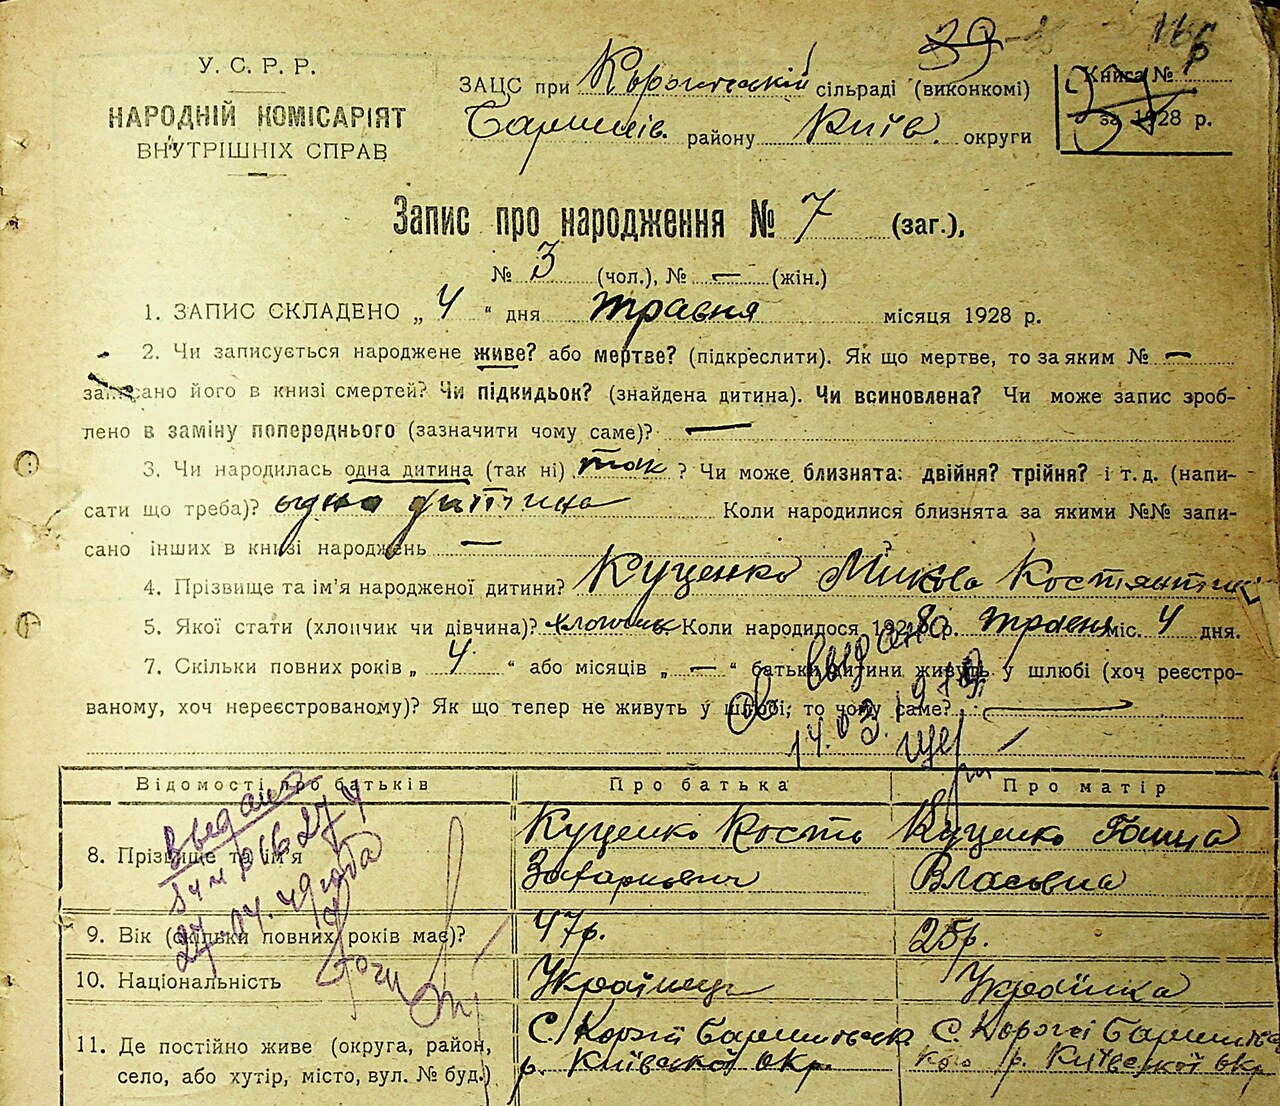 У. С. Р. Р.
НАРОДНІЙ КОМІСАРІЯТ
ВНУТРІШНІХ СПРАВ
39
166
ЗАЦС при Коржівській сільраді (виконкомі)
Баришів. району Київ. округи
Книга №
за 1928 р.
Запис про народження № 7 (заг.),
№ 3 (чол.), № — (жін.)
1. ЗАПИС СКЛАДЕНО „ 4 “ дня травня місяця 1928 р.
2. Чи записується народжене живе? або мертве? (підкреслити). Як що мертве, то за яким № —
записано його в книзі смертей? Чи підкидьок? (знайдена дитина). Чи всиновлена? Чи може запис зроб-
лено в заміну попереднього (зазначити чому саме)? —
3. Чи народилась одна дитина (так ні) так ? Чи може близнята: двійня? трійня? і т. д. (напи-
сати що треба)? одна дитина Коли народилися близнята за якими №№ запи-
сано інших в книзі народжень — ?
4. Прізвище та ім’я народженої дитини? Куценко Микола Костянтин
5. Якої стати (хлопчик чи дівчина)? хлопчик Коли народилося 1928 р. травня міс. 4 дня.
7. Скільки повних років „ 4 “ або місяців „ — “ батьки дитини живуть у шлюбі (хоч реєстро-
ваному, хоч нереєстрованому)? Як що тепер не живуть у шлюбі; то чому саме? —
14.03.19
Відомості про батьків Про батька Про матір
8. Прізвище та ім’я Куценко Кость Захаркович Куценко Ганна Власьвна
Введано
27.04.49 года
9. Вік (скільки повних років має)? 47р. 25р.
10. Національність Українець Українка
11. Де постійно живе (округа, район, С. Коржі Баришівськ С. Коржі Баришівсь
село, або хутір, місто, вул. № буд.) р. Київської окр. кого р. Київської окр